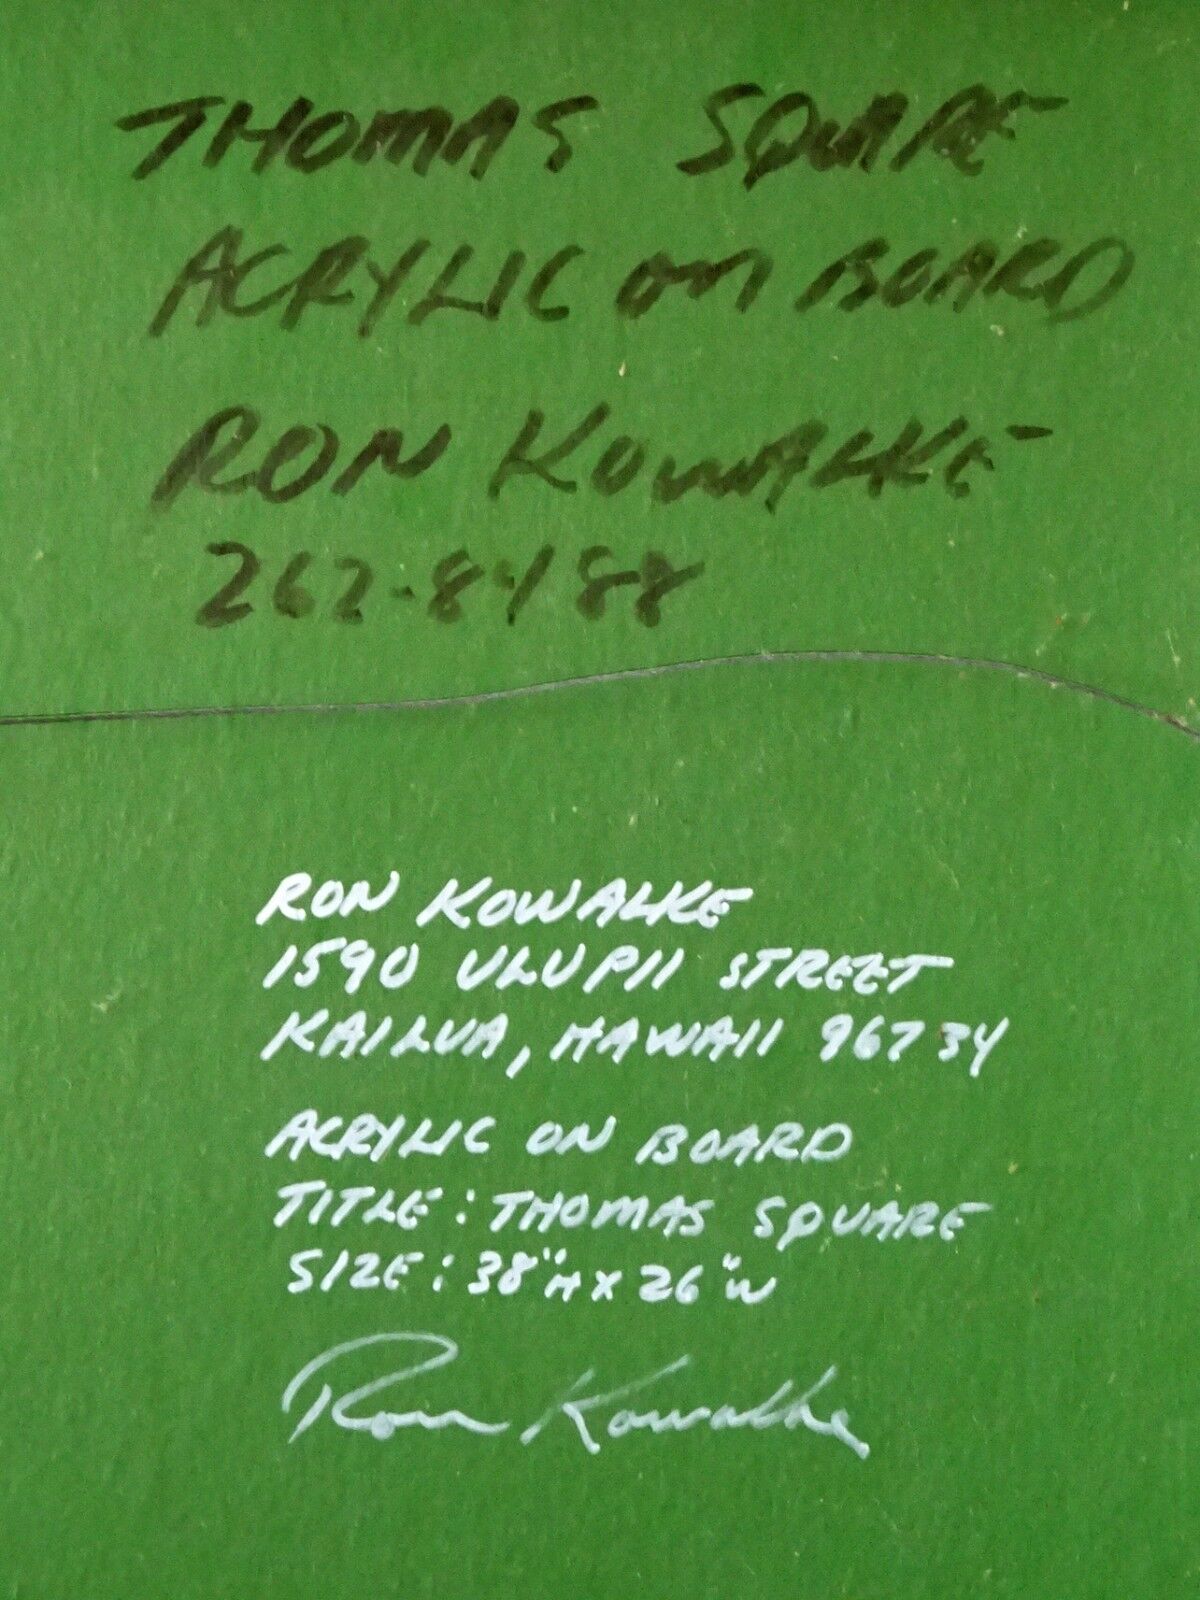 THOMAS SQUARE
ACRYLIC ON BOARD
RON KOWALKE
262-8488
RON KOWALKE
1590 ULUPII STREET
KAILUA, HAWAII 96734
ACRYLIC ON BOARD
TITLE: THOMAS SQUARE
SIZE: 38"H X 26"W
Ron Kowalke